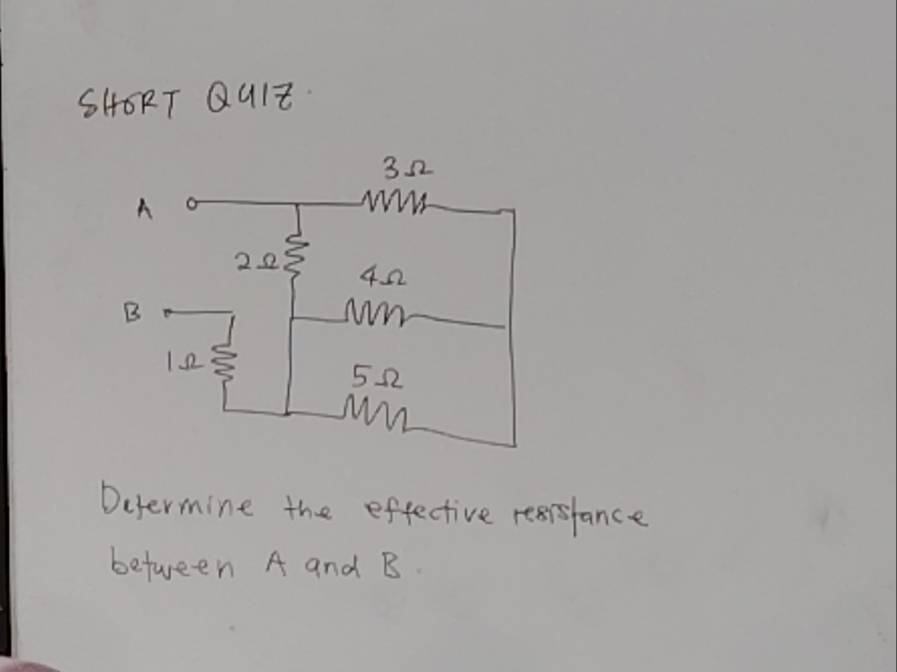 SHORT QUIZ.
3Ω
A
2Ω
4Ω
B
1Ω
5Ω
Determine the effective resistance
between A and B.